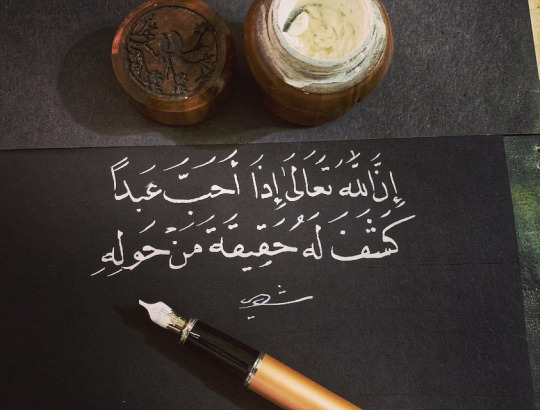 إِنَّ اللَّهَ تَعَالَىٰ إِذَا أَحَبَّ عَبداً
كَشَفَ لَهُ حَقِيقَةَ مَنْ حَولِهِ